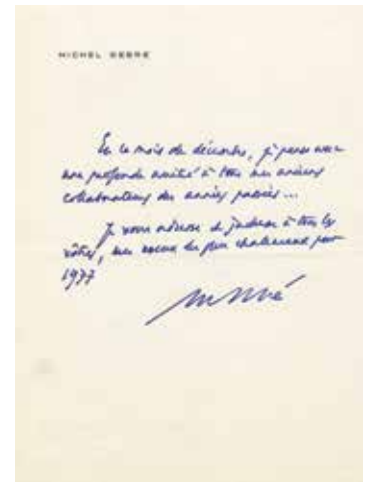 MICHEL DEBRÉ
En ce mois de décembre, je pense avec
une profonde amitié à tous mes anciens
collaborateurs des années passées...
Je vous adresse, et j'adresse à tous les
vôtres, mes vœux les plus chaleureux pour
1977